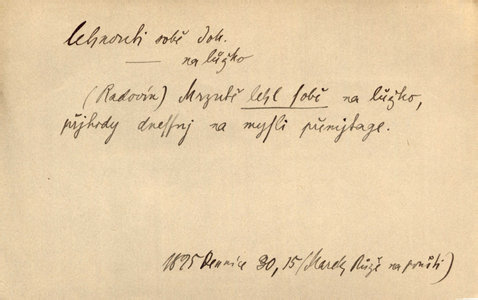 lehnouti sobě dok.
— na lůžko
(Radovín) Mrzutě lehl sobě na lůžko,
příhody dnešnj na mysli přemjtage.
1825 Dennice 30, 15 (Marek, Růže na poušti)